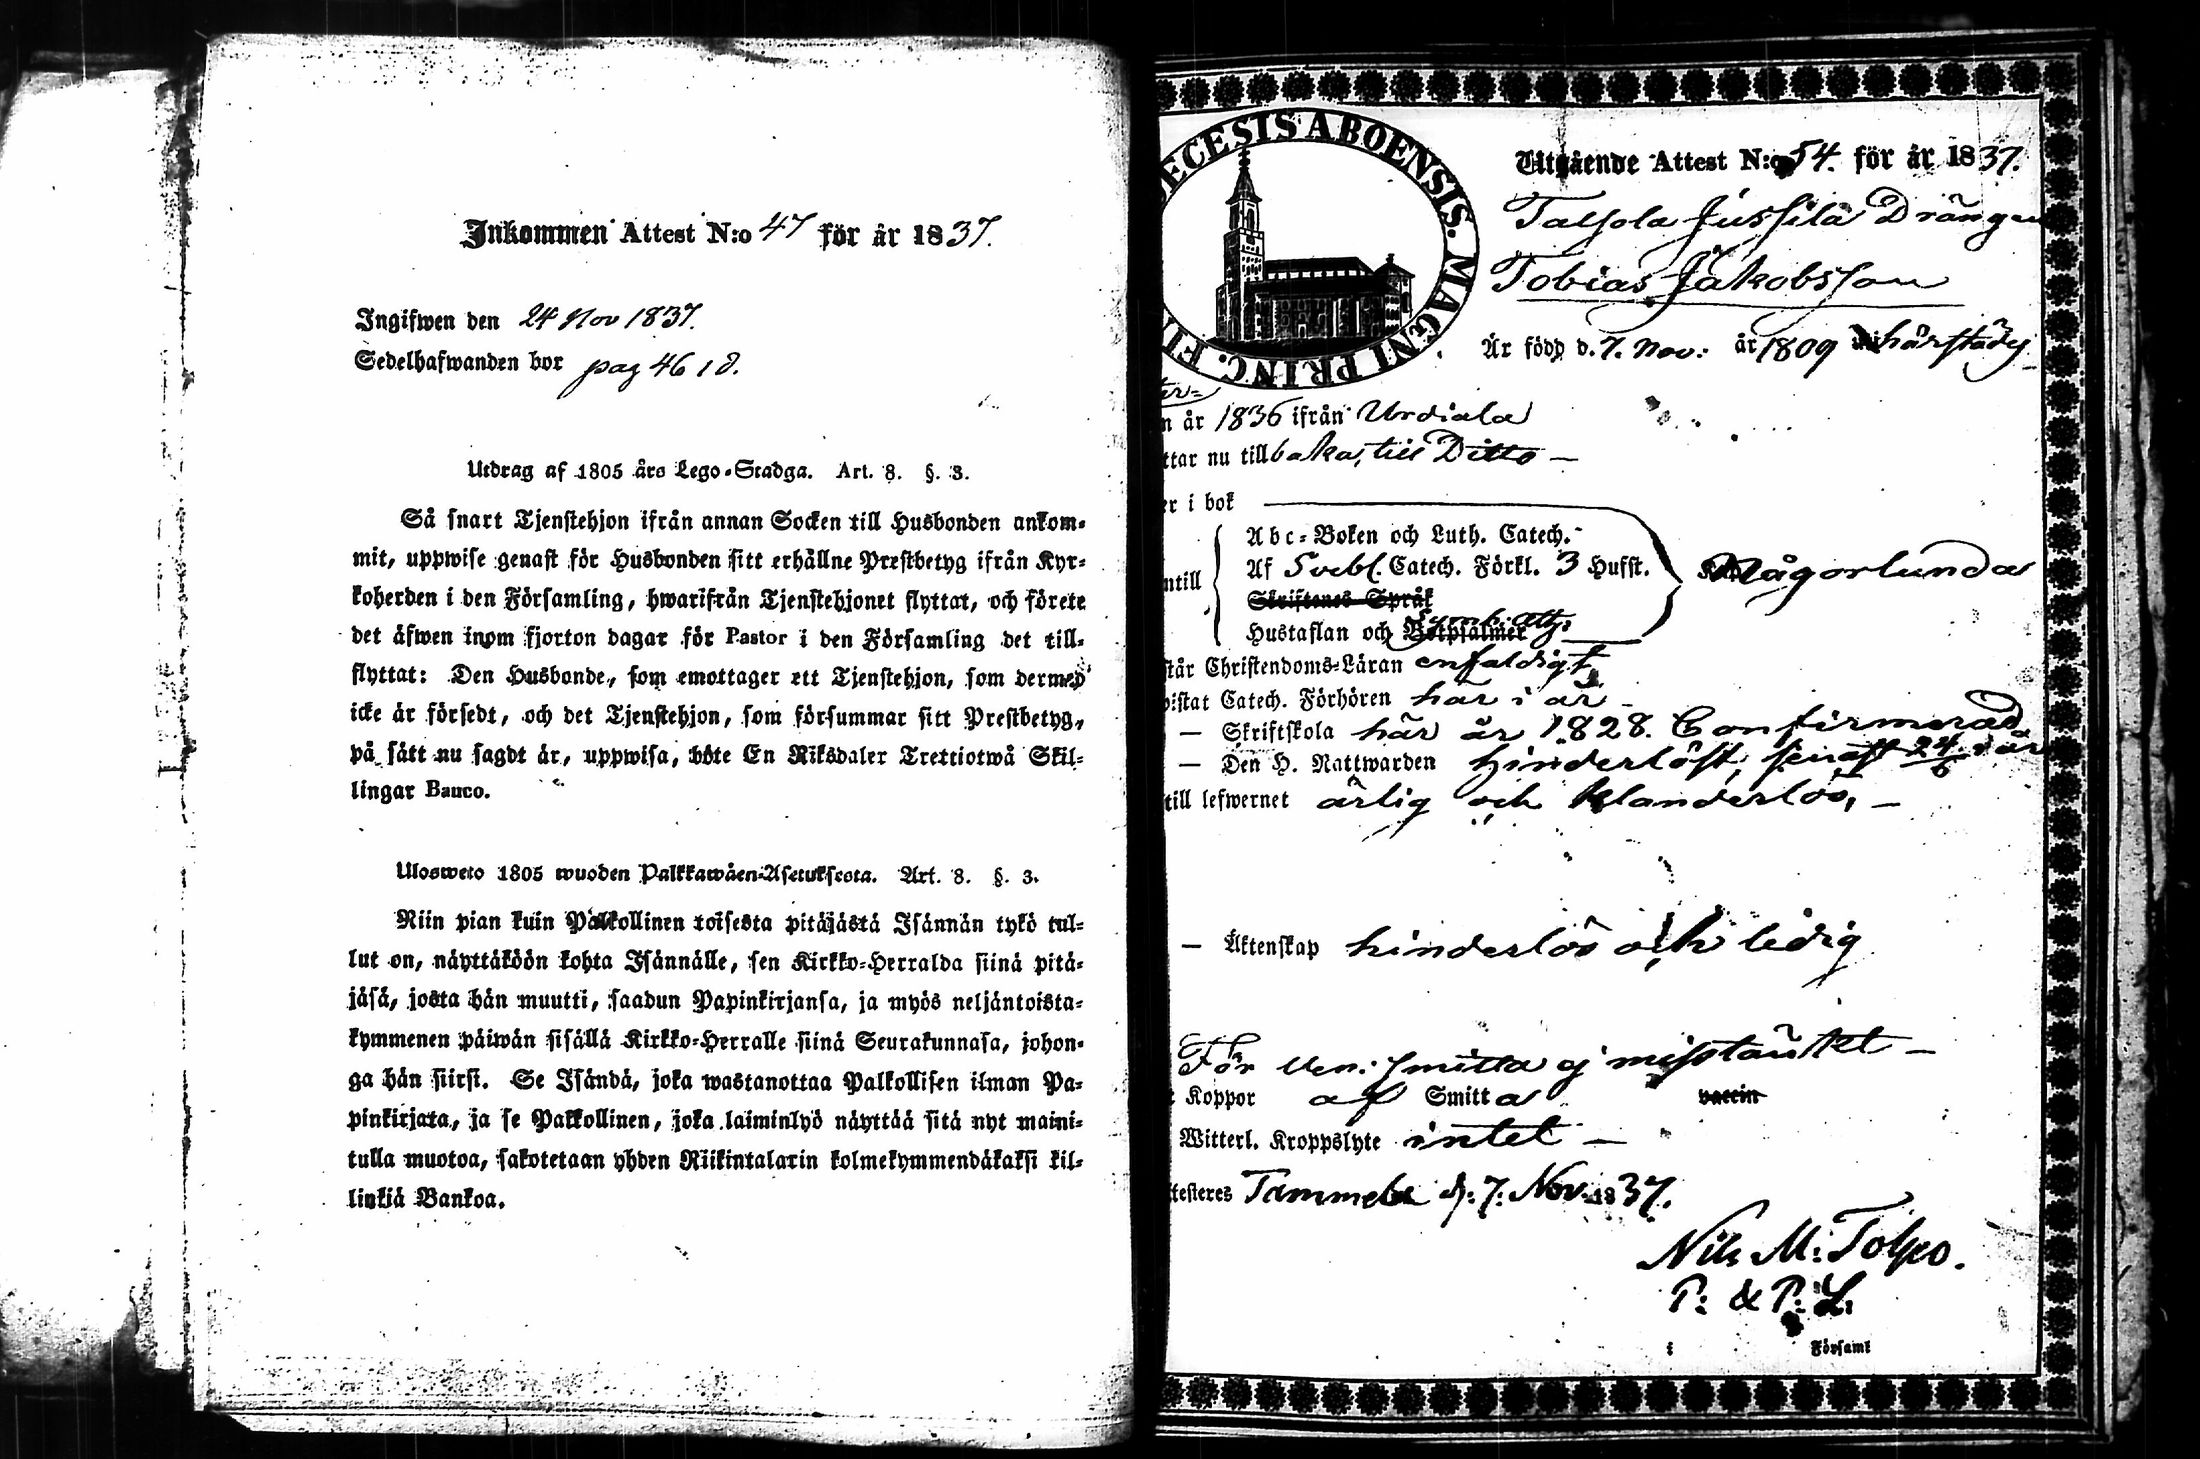 Inkommen Attest N:o 47 för år 1837.
Ingifwen den 24 Nov 1837.
Sedelhafwanden bor pag 4618.
Utdrag af 1805 års Lego-Stadga. Art. 8. §. 3.
Så snart Tjenstehjon ifrån annan Socken till Husbonden ankom-
mit, uppwise genast för Husbonden sitt erhållne Prestbetyg ifrån Kyr-
koherden i den Församling, hwarifrån Tjenstehjonet flyttat, och förete
det äfwen inom fjorton dagar för Pastor i den Församling det till-
flyttat: Den Husbonde, som emottager ett Tjenstehjon, som dermed
icke är försedt, och det Tjenstehjon, som försummar sitt Prestbetyg,
på sätt nu sagdt är, uppwisa, böte En Riksdaler Trettiotwå Skil-
lingar Banco.
Ulosweto 1805 wuoden Palkkawäen-Asetuksesta. Art. 8. §. 3.
Niin pian kuin Palkollinen toisesta pitäjästä Isännän tykö tul-
lut on, näyttäköön kohta Isännälle, sen Kirkko-Herralda siinä pitä-
jäsä, josta hän muutti, saadun Papinkirjansa, ja myös neljäntoista-
kymmenen päiwän sisällä Kirkko-Herralle siinä Seurakunnasa, johon-
ga hän siirsi. Se Isändä, joka wastanottaa Palkollisen ilman Pa-
pinkirjata, ja se Palkollinen, joka laiminlyö näyttää sitä nyt maini-
tulla muotoa, sakotetaan yhden Riikintalarin kolmekymmendäkaksi kil-
linkiä Bankoa.
ECESIS ABOENSIS. MAGNI PRINC. FI
Utgående Attest N:o 54. för år 1837.
Talsola Jussila Drängen
Tobias Jakobsson
Är född d. 7. Nov: år 1809 härstädes
n år 1836 ifrån Urdiala
ttar nu tillbaka, till Ditto —
er i bok
Abc-Boken och Luth. Catech.
Af Svebl. Catech. Förkl. 3 Hufst.
ntill
Någorlunda
Skriftenes Språk
Hustaflan och Botpsalmer Symb. Ath.
står Christendoms-Läran enfaldigt
vistat Catech. Förhören har i år —
— Skriftskola här år 1828. Confirmerad
— Den H. Nattwarden hinderlöst, senast 24/6 i år
till lefwernet ärlig och klanderlös, —
— Äktenskap hinderlös och ledig
För Ven: smitta ej misstänkt —
Koppor af Smitta vaccin
Witterl. Kroppslyte intet —
testeres Tammela d. 7. Nov. 1837.
Nils M. Tolpo.
P: & P: L:
i Församl